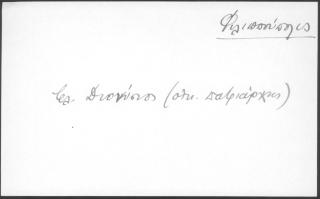 Φιλιππούπολις
βλ. Διονύσιος (οἰκ. πατριάρχης)